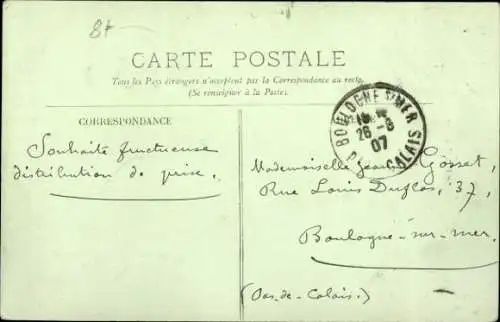 8+
CARTE POSTALE
Tous les Pays étrangers n'acceptent pas la Correspondance au recto.
(Se renseigner à la Poste).
CORRESPONDANCE
Souhaite fructueuse
distribution de prise.
BOULOGNE S/MER
26 - 8
07
CALAIS
Mademoiselle Gosset,
Rue Louis Duflos, 37,
Boulogne-sur-mer.
(Pas-de-Calais.)